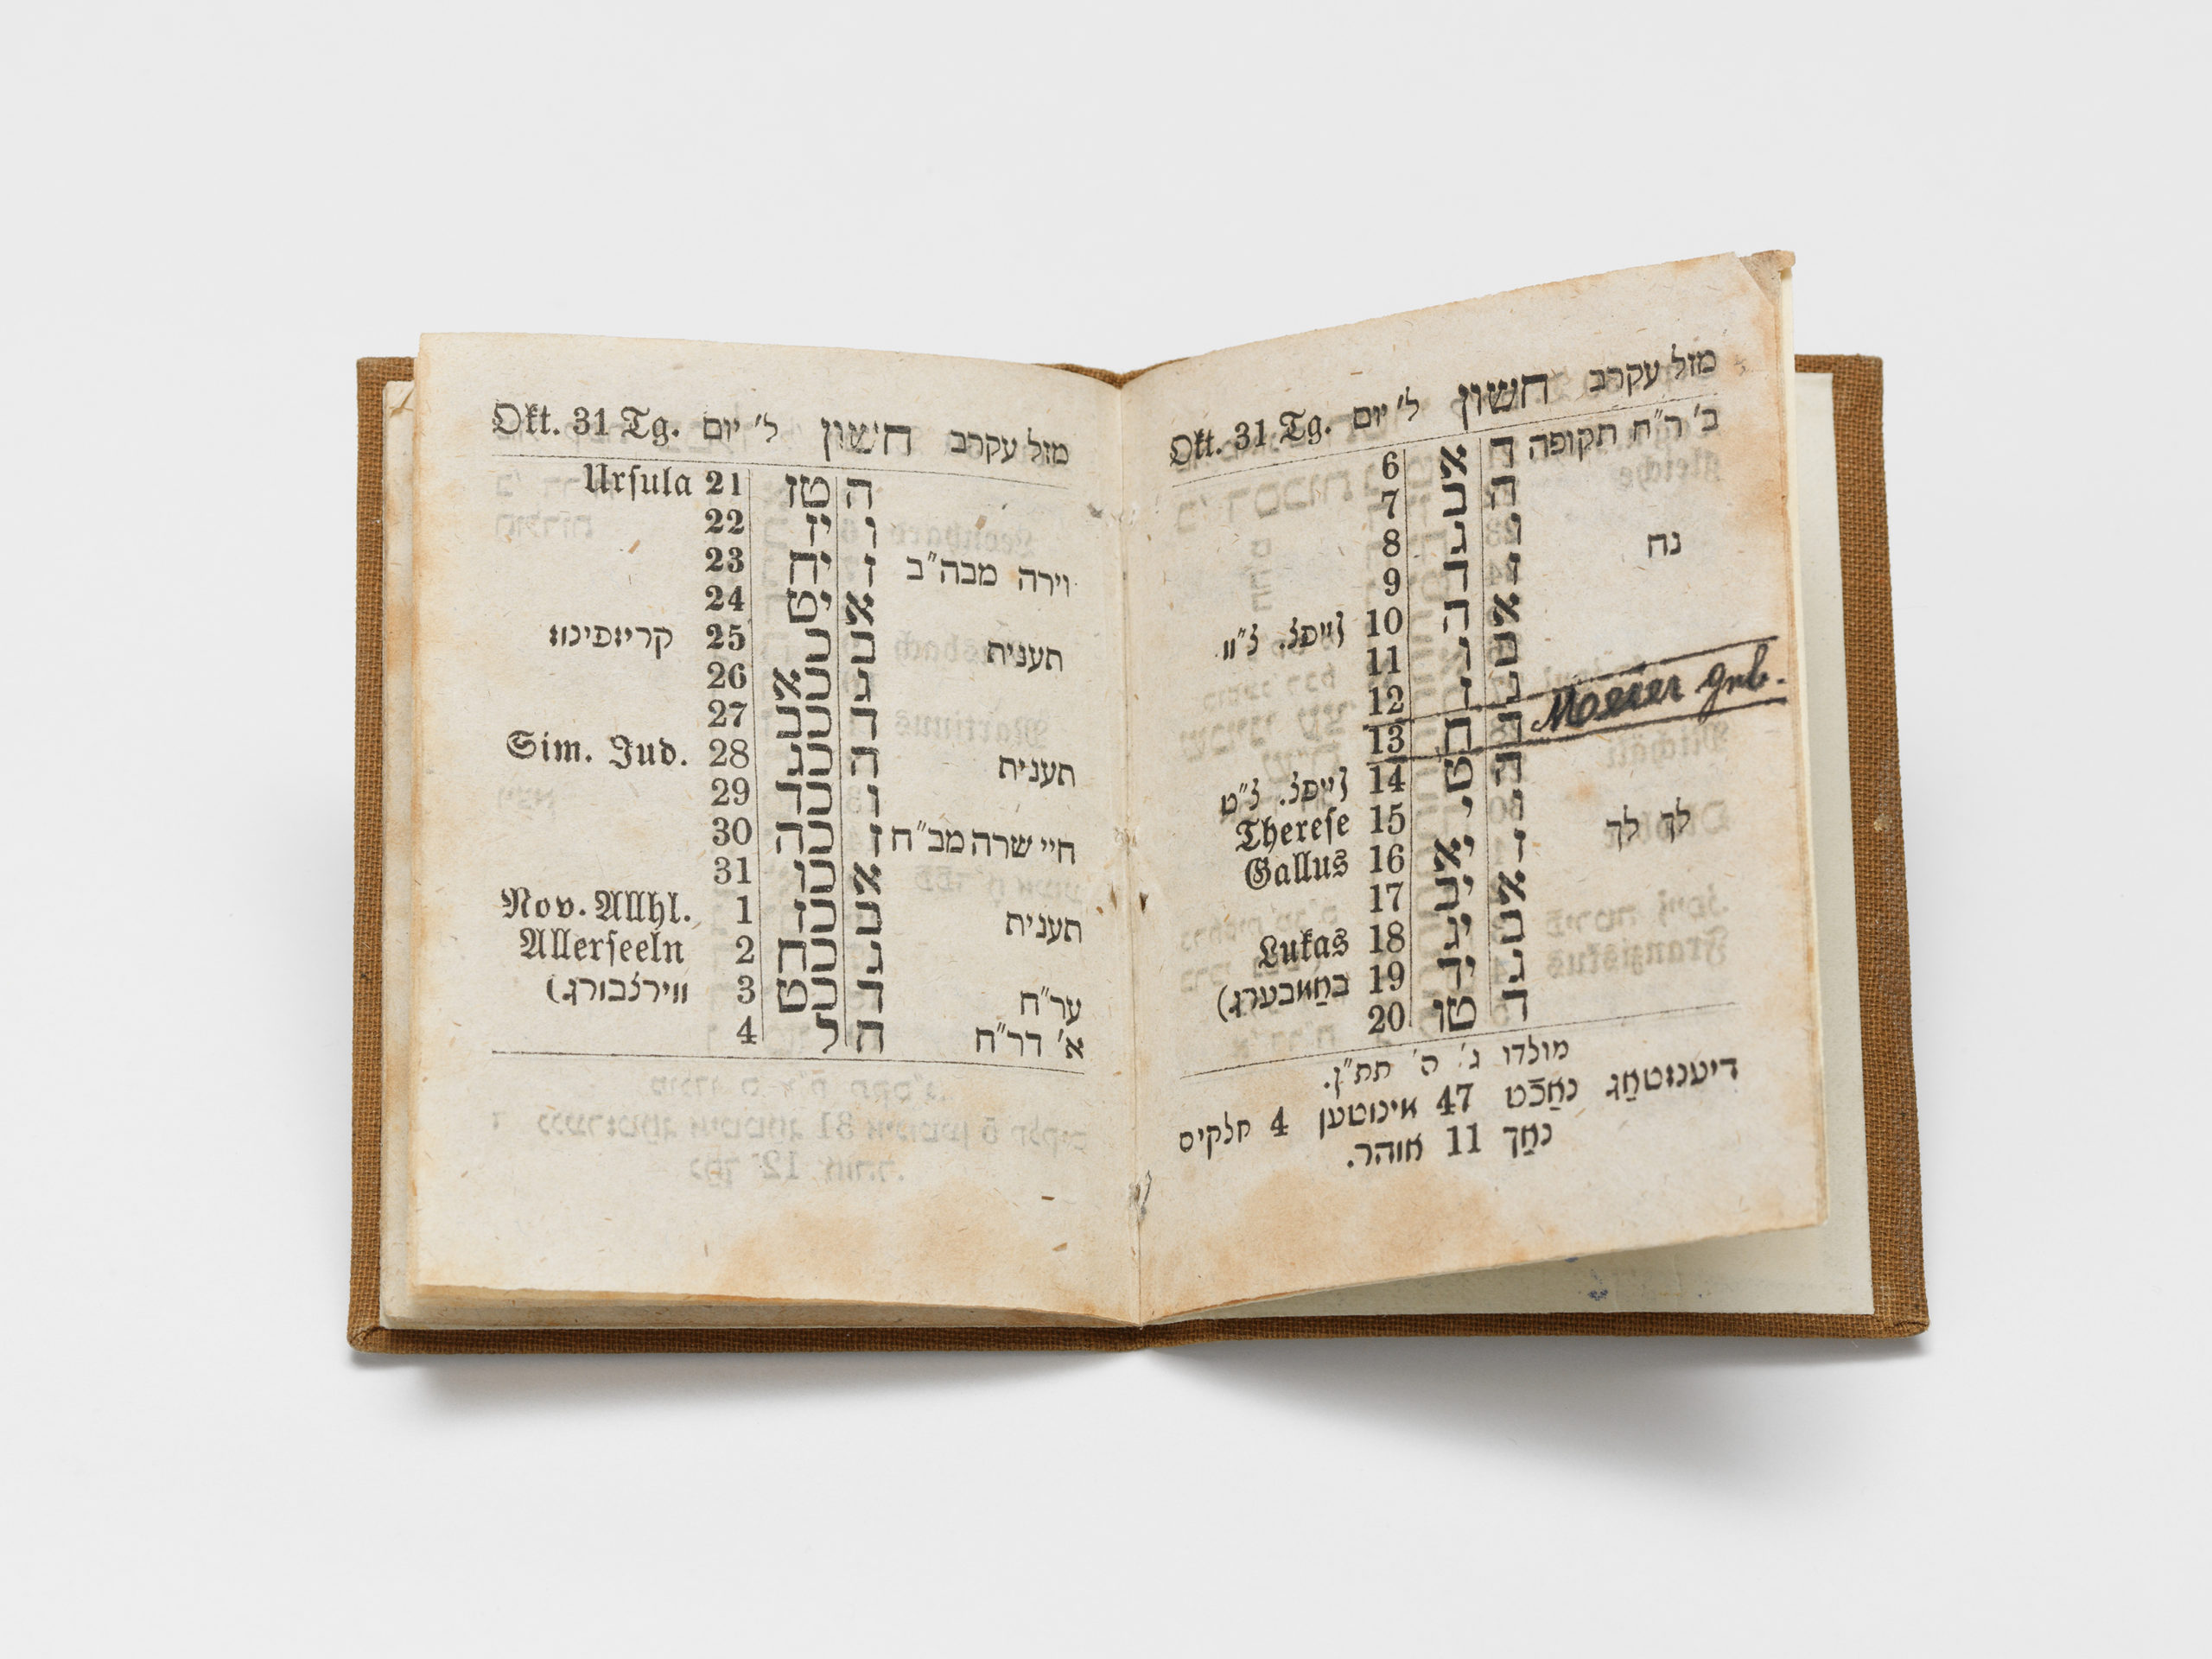 מזל עקרב חשון ל׳ יום Okt. 31 Tg.
ב׳ ר״ח תקופה ד א 6
ה ב 7
נח ו ג 8
ז ד 9
א ה 10 לייפצ. צ״וו
ב ו 11
ג ז 12
Meier grb. ד ח 13
ה ט 14 לייפצ. צ״ט
לך לך ו י 15 Therese
ז יא 16 Gallus
א יב 17
ב יג 18 Lukas
ג יד 19 באַמבערג)
ד טו 20
מולדו ג׳ ה׳ תת״ן.
דיענסטאַג נאַכט 47 מינוטען 4 חלקים
נאַך 11 אוהר.
מזל עקרב חשון ל׳ יום Okt. 31 Tg.
ה טז 21 Ursula
ו יז 22
וירה מבה״ב ז יח 23
א יט 24
תענית ב כ 25 קריספינוס
ג כא 26
ד כב 27
תענית ה כג 28 Sim. Jud.
ו כד 29
חיי שרה מב״ח ז כה 30
א כו 31
תענית ב כז 1 Nov. Allhl.
ג כח 2 Allerseeln
ער״ח ד כט 3 ווירצבורג)
א׳ דר״ח ה ל 4